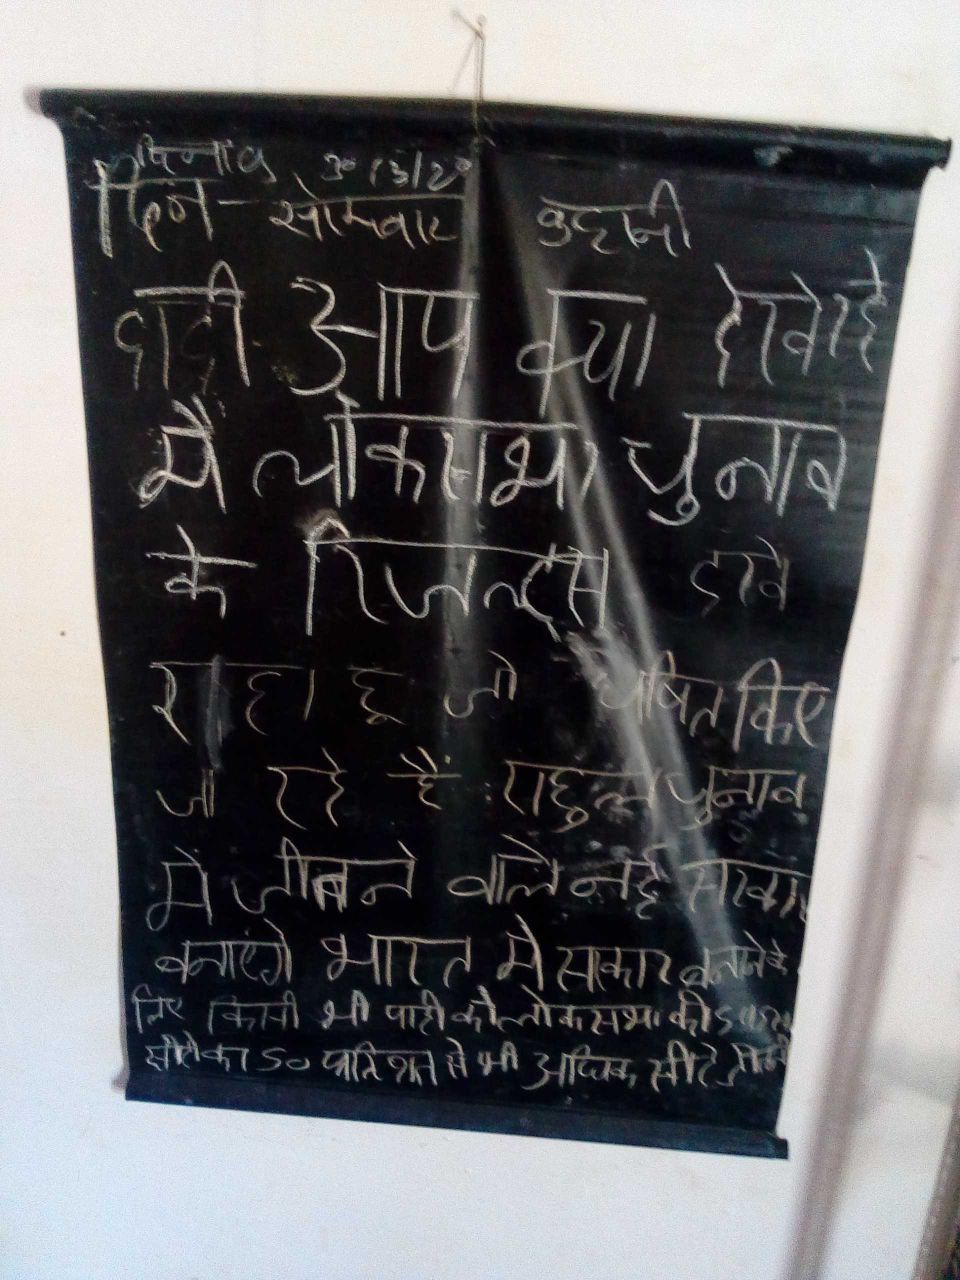 30/3/20
दिन - सोमवार कहानी
दादी आप क्या देखे रहे
मै लोकसभा चुनाव
के रिजल्ट्स देखे
रहा हू जो घोषित किए
जा रहे हैं राहुल चुनाव
मे जीतने वाले नई सरकार
बनाएंगे भारत मे सरकार बनाने के
लिए किसी भी पार्टी को लोकसभा की
सीटो का 50 प्रतिशत से भी अधिक सीटे